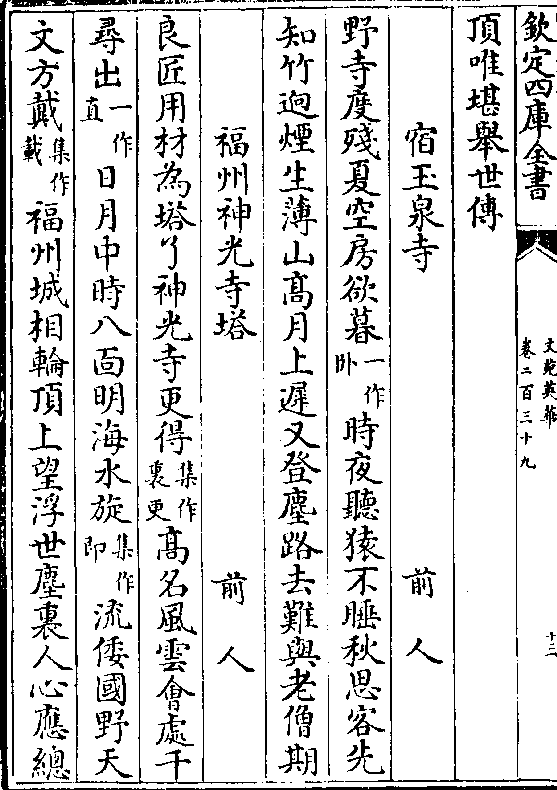 欽定四庫全書
文苑英華
卷二百三十九
十三
頂唯堪舉世傳
宿玉泉寺 前人
野寺度殘夏空房欲暮一作卧時夜聽猿不睡秋思客先
知竹迥煙生薄山高月上遲又登塵路去難與老僧期
福州神光寺塔 前人
良匠用材為塔了神光寺更得集作裏更高名風雲會處千
尋出一作直日月中時八面明海水旋集作即流倭國野天
文方戴集作載福州城相輪頂上望浮世塵裏人心應總